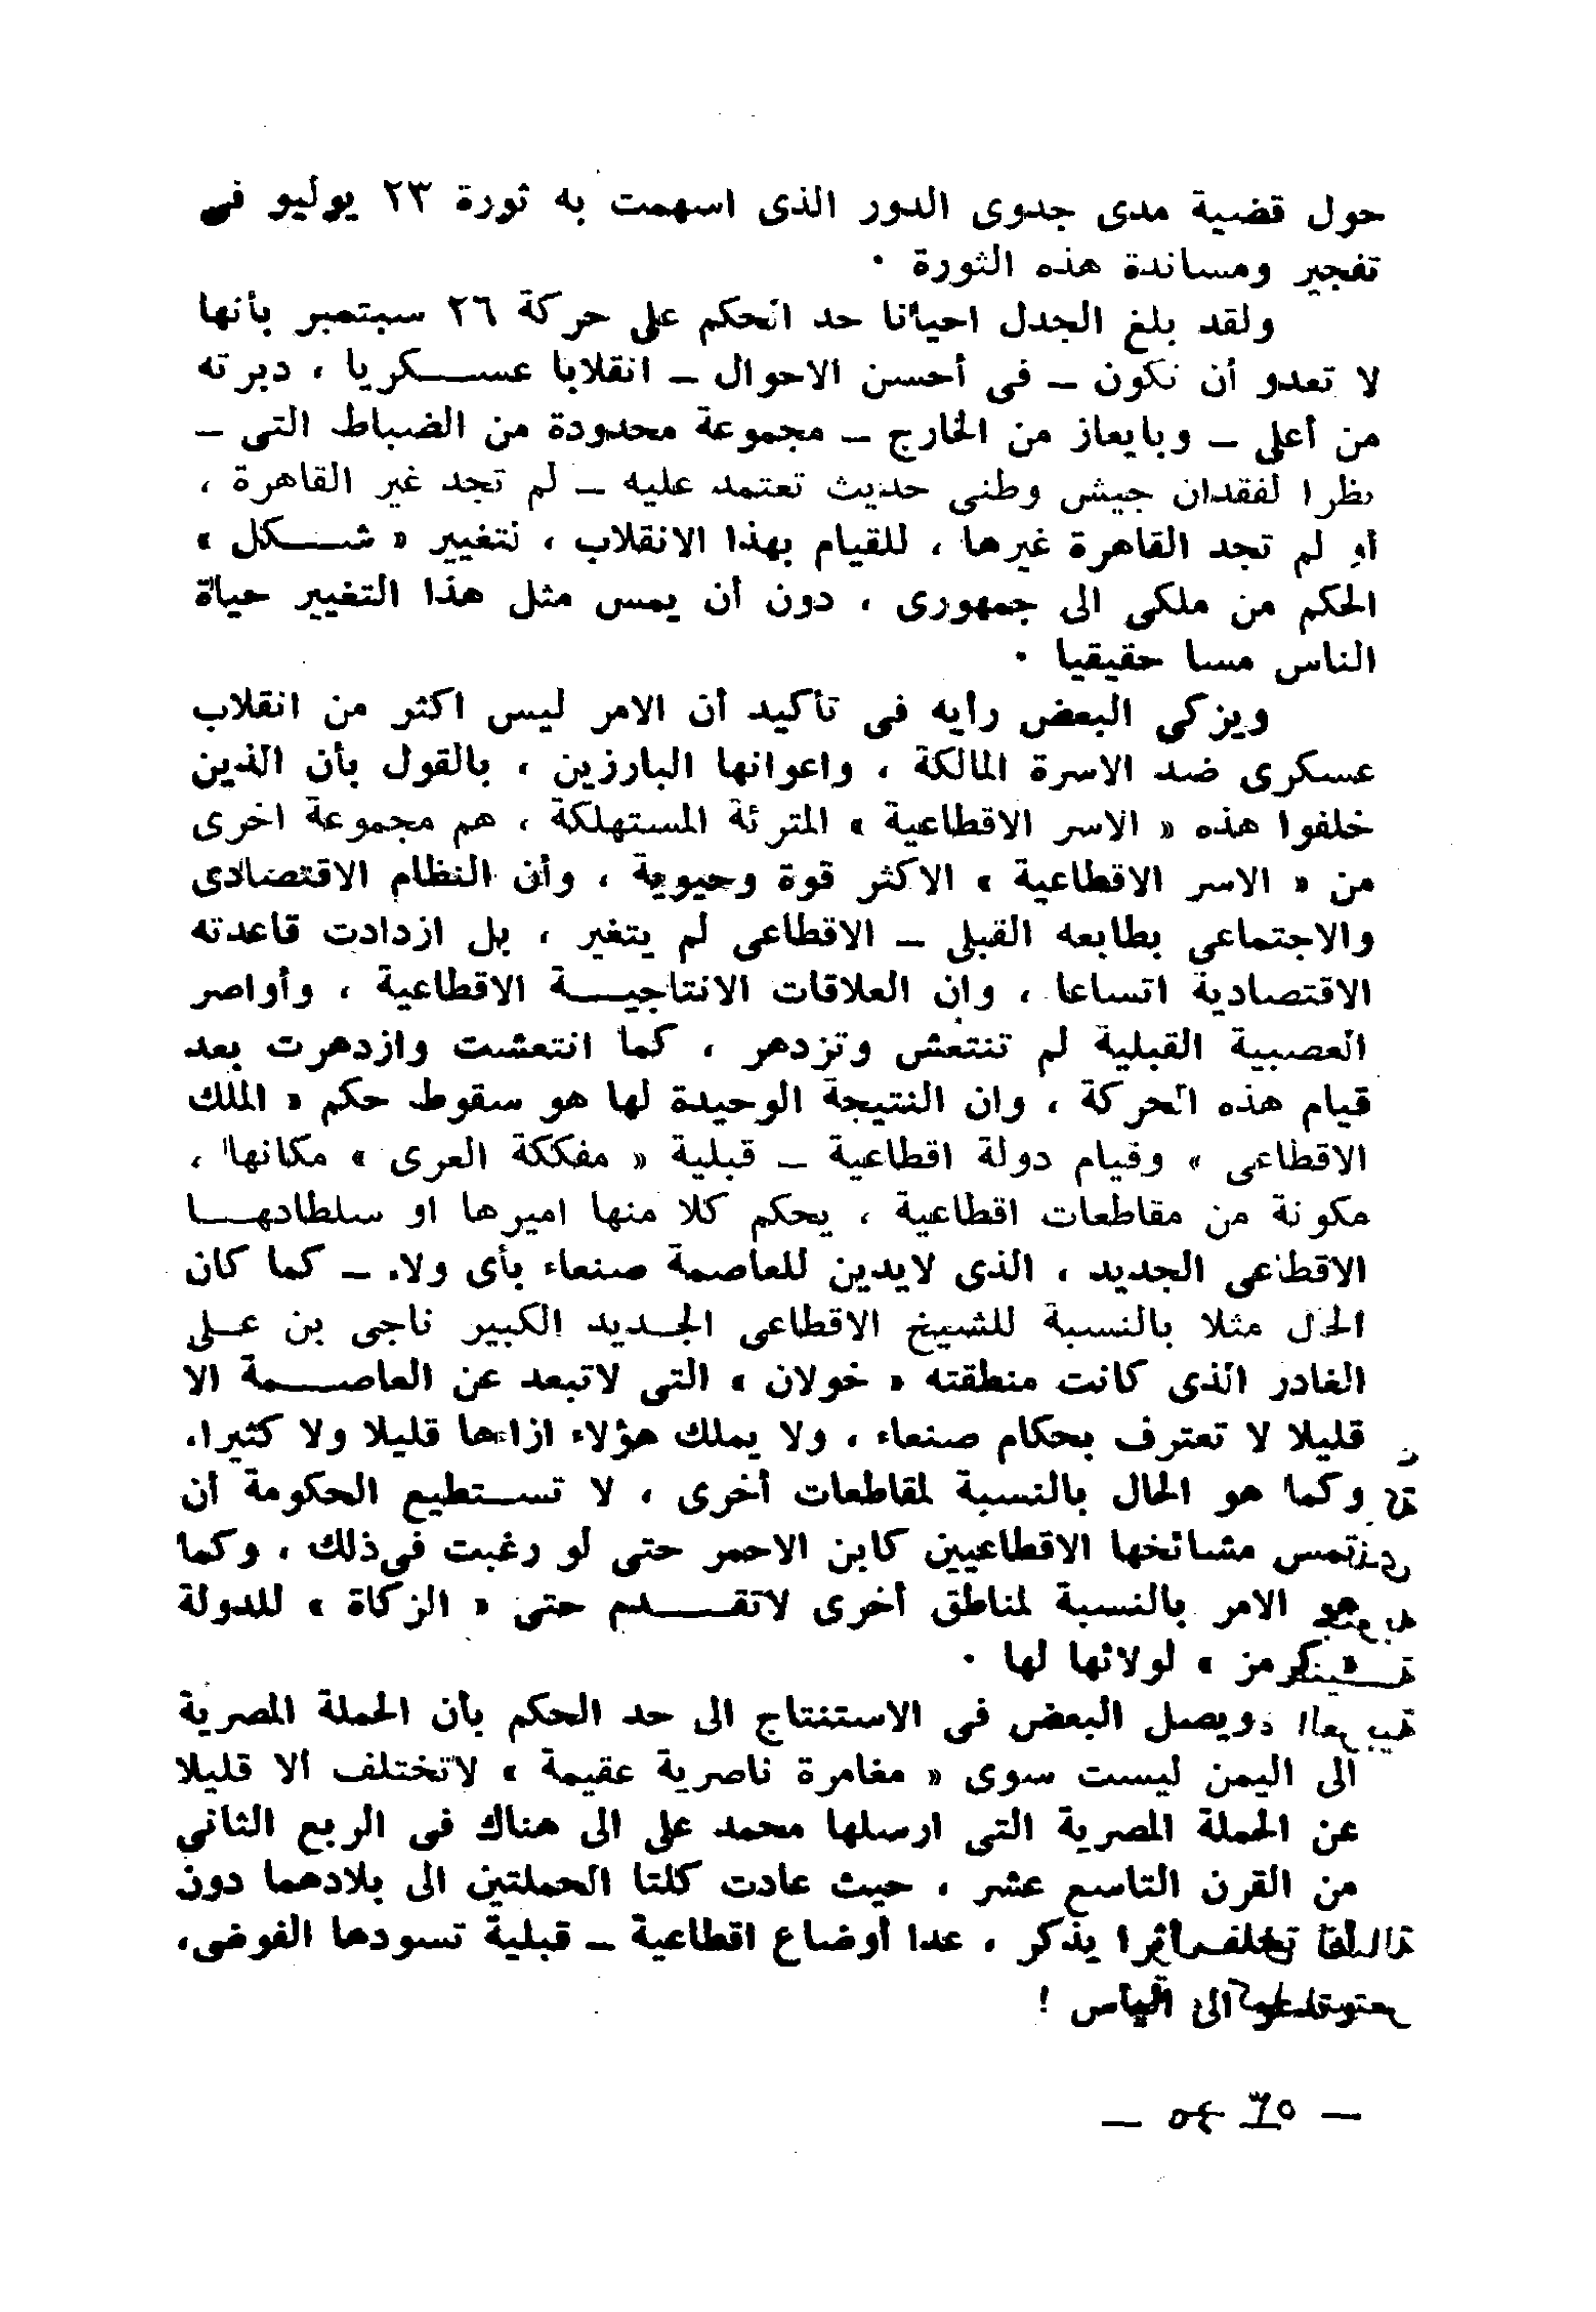 حول قضية مدى جدوى الدور الذى اسهمت به ثورة ٢٣ يوليو فى
تفجير ومساندة هذه الثورة ٠
ولقد بلغ الجدل احيانا حد الحكم على حركة ٢٦ سبتمبر بأنها
لا تعدو أن تكون – فى أحسن الاحوال – انقلابا عسـكريا ، دبرته
من أعلى – وبايعاز من الخارج – مجموعة محدودة من الضباط التى –
نظرا لفقدان جيش وطنى حديث تعتمد عليه – لم تجد غير القاهرة ،
أو لم تجد القاهرة غيرها ، للقيام بهذا الانقلاب ، لتغيير « شـكل »
الحكم من ملكى الى جمهورى ، دون أن يمس مثل هذا التغيير حياة
الناس مسا حقيقيا ٠
ويزكى البعض رأيه فى تأكيد أن الامر ليس اكثر من انقلاب
عسكرى ضد الاسرة المالكة ، واعوانها البارزين ، بالقول بأن الذين
خلفوا هذه « الاسر الاقطاعية » المترئة المستهلكة ، هم مجموعة اخرى
من « الاسر الاقطاعية » الاكثر قوة وحيوية ، وأن النظام الاقتصادى
والاجتماعى بطابعه القبلى – الاقطاعى لم يتغير ، بل ازدادت قاعدته
الاقتصادية اتساعا ، وان العلاقات الانتاجيـة الاقطاعية ، وأواصر
العصبية القبلية لم تنتعش وتزدهر ، كما انتعشت وازدهرت بعد
قيام هذه الحركة ، وان النتيجة الوحيدة لها هو سقوط حكم « الملك
الاقطاعى » وقيام دولة اقطاعية – قبلية « مفككة العرى » مكانها ،
مكونة من مقاطعات اقطاعية ، يحكم كلا منها اميرها او سلطادهـا
الاقطاعى الجديد ، الذى لايدين للعاصمة صنعاء بأى ولاء – كما كان
الحال مثلا بالنسبة للشيخ الاقطاعى الجـديد الكبير ناجى بن عـلى
الغادر الذى كانت منطقته « خولان » التى لاتبعد عن العاصـمة الا
قليلا لا تعترف بحكام صنعاء ، ولا يملك هؤلاء ازاءها قليلا ولا كثيرا،
وكما هو الحال بالنسبة لمقاطعات أخرى ، لا تسـتطيع الحكومة أن
تمس مشائخها الاقطاعيين كابن الاحمر حتى لو رغبت فى ذلك ، وكما
هو الامر بالنسبة لمناطق أخرى لاتقـدم حتى « الزكاة » للدولة
« كرمز » لولائها لها ٠
ويصل البعض فى الاستنتاج الى حد الحكم بأن الحملة المصرية
الى اليمن ليست سوى « مغامرة ناصرية عقيمة » لاتختلف الا قليلا
عن الحملة المصرية التى ارسلها محمد على الى هناك فى الربع الثانى
من القرن التاسع عشر ، حيث عادت كلتا الحملتين الى بلادهما دون
تخلف أثرا يذكر ، عدا أوضاع اقطاعية – قبلية تسودها الفوضى،
الى اليأس !